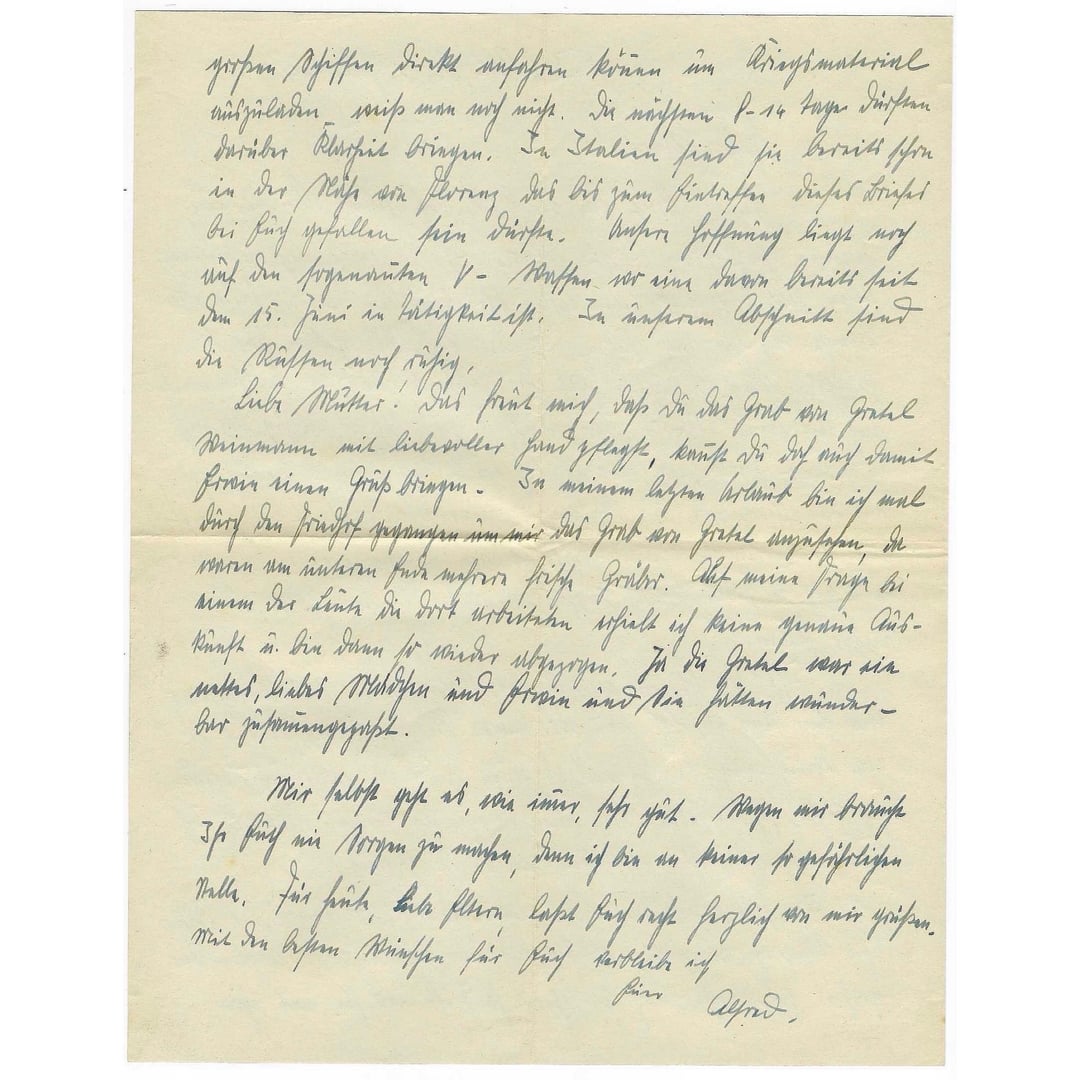 großen Schiffen direkt anfahren können um Kriegsmaterial
auszuladen, weiß man noch nicht. Die nächsten 8-14 Tage dürften
darüber Klarheit bringen. In Italien sind sie bereits schon
in der Nähe von Florenz das bis zum Eintreffen dieses Briefes
bei Euch gefallen sein dürfte. Unsere Hoffnung liegt noch
auf den sogenannten V-Waffen wo eine davon bereits seit
dem 15. Juni in Tätigkeit ist. In unserem Abschnitt sind
die Russen noch ruhig.
Liebe Mutter! Das freut mich, daß Du das Grab von Gretel
Weinmann mit liebevoller Hand pflegst, kannst Du doch auch damit
Erwin einen Gruß bringen. In meinem letzten Urlaub bin ich mal
durch den Friedhof gegangen um mir das Grab von Gretel anzusehen, da
waren am unteren Ende mehrere frische Gräber. Auf meine Frage bei
einem der Leute die dort arbeiteten erhielt ich keine genaue Aus-
kunft u. bin dann so wieder abgezogen. Ja die Gretel war ein
nettes, liebes Mädchen und Erwin und Sie hätten wunder-
bar zusammengepaßt.
Mir selbst geht es, wie immer, sehr gut. Wegen mir braucht
Ihr Euch nie Sorgen zu machen, denn ich bin an keiner so gefährlichen
Stelle. Für heute, liebe Eltern, laßt Euch recht herzlich von mir grüßen.
Mit den besten Wünschen für Euch verbleibe ich
Euer Alfred.